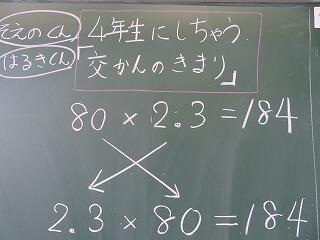 そえのくん
はるきくん
4年生にしちゃう
「交かんのきまり」
80 × 2.3 = 184
2.3 × 80 = 184